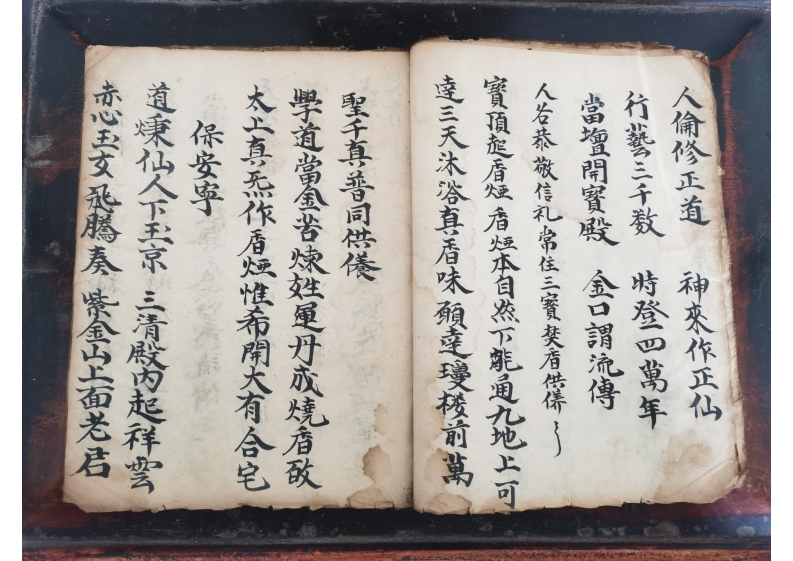 人倫修正道　神來作正仙
行藝三千数　時登四萬年
當壇開寶殿　金口謂流傳
人各恭敬信礼常住三寶焚香供養〻
寳頂起香烟香烟本自然下能通九地上可
逹三天沐浴真香味願逹瓊楼前萬
聖千真普同供養
學道當金苦煉姓運丹成燒香啟
太上真炁作香烟惟希開大有合宅
保安寧
道煉仙人下玉京　三清殿内起祥雲
赤心玉女飛騰奏　紫金山上面老君